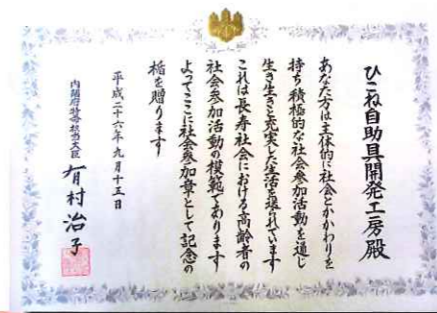 ひこね自助具開発工房殿
あなた方は主体的に社会とかかわりを
持ち積極的な社会参加活動を通じ
生き生きと充実した生活を送られています
これは長寿社会における高齢者の
社会参加活動の模範であります
よってここに社会参加章として記念の
楯を贈ります
平成二十六年九月十五日
内閣府特命担当大臣 有村治子